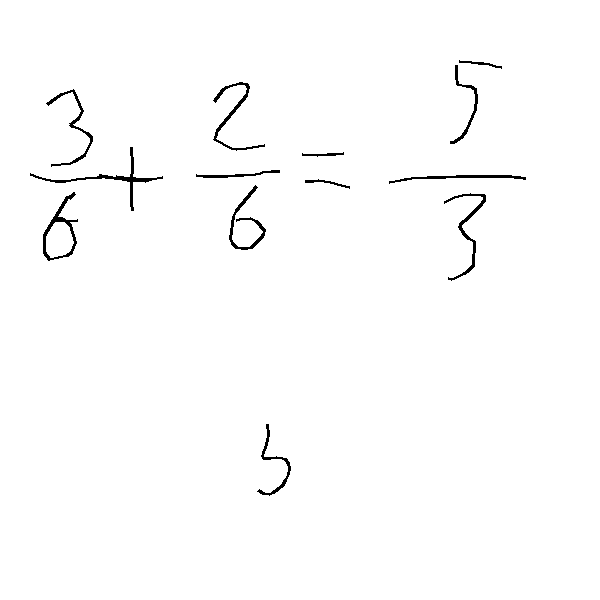 3/6 + 2/6 = 5/3
5